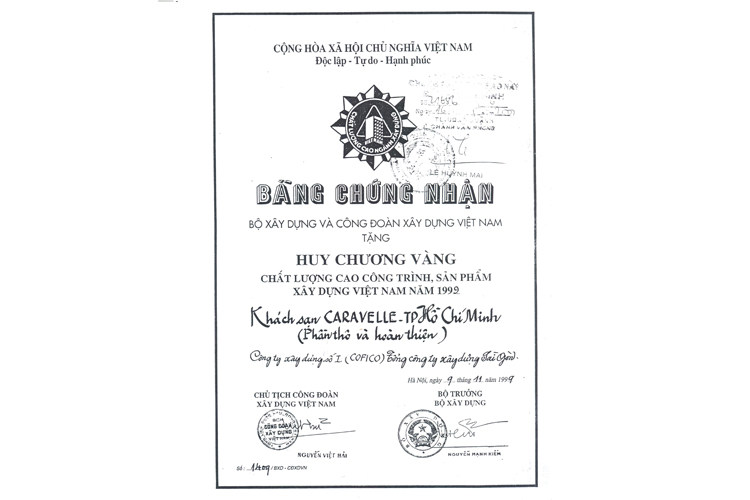 CỘNG HÒA XÃ HỘI CHỦ NGHĨA VIỆT NAM
Độc lập - Tự do - Hạnh phúc
CHẤT LƯỢNG CAO NGÀNH XÂY DỰNG
LÊ HUỲNH MAI
BẰNG CHỨNG NHẬN
BỘ XÂY DỰNG VÀ CÔNG ĐOÀN XÂY DỰNG VIỆT NAM
TẶNG
HUY CHƯƠNG VÀNG
CHẤT LƯỢNG CAO CÔNG TRÌNH, SẢN PHẨM
XÂY DỰNG VIỆT NAM NĂM 1999
Khách sạn CARAVELLE - TP Hồ Chí Minh
(Phần thô và hoàn thiện)
Công ty xây dựng số 1 (COFICO) Tổng công ty xây dựng Sài Gòn.
Hà Nội, ngày 9 tháng 11 năm 1999
CHỦ TỊCH CÔNG ĐOÀN
XÂY DỰNG VIỆT NAM
BỘ TRƯỞNG
BỘ XÂY DỰNG
CÔNG ĐOÀN
XÂY DỰNG
VIỆT NAM
NGUYỄN VIẾT HẢI
NGUYỄN MẠNH KIỂM
Số : 1409 / BXD - CĐXDVN